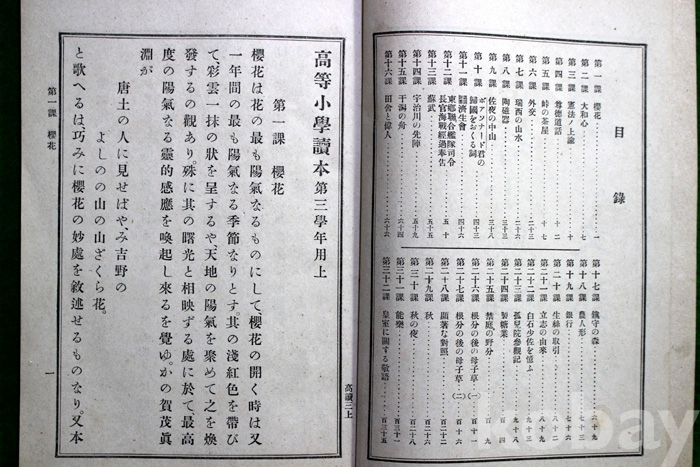 目錄
第一課 櫻花 一
第二課 大和心 四
第三課 憲法ノ上諭 七
第四課 尊德道話 十
第五課 峠の茶屋 十二
第六課 外交 十七
第七課 瑞西の山水 二十三
第八課 陶磁器 二十六
第九課 佐夜の中山 三十三
第十課 ボアソナード君の歸國をおくる詞 三十八
第十一課 濟生會 四十三
第十二課 東鄕聯合艦隊司令長官海戰經過奉告 四十六
第十三課 蘇武 五十
第十四課 宇治川の先陣 五十五
第十五課 干潟の舟 五十九
第十六課 田舍と偉人 六十四
第十七課 鎭守の森 六十九
第十八課 農人形 七十三
第十九課 銀行 七十六
第二十課 生絲の取引 七十九
第二十一課 立志の由來 八十二
第二十二課 白石少佐を憶ふ 八十九
第二十三課 孤兒院參觀記 九十三
第二十四課 製糖業 九十八
第二十五課 禁庭の野分 百四
第二十六課 根分の後の母子草(一) 百九
第二十七課 根分の後の母子草(二) 百十六
第二十八課 顯著な對照 百二十
第二十九課 秋 百二十六
第三十課 秋の夜 百二十八
第三十一課 能樂 百三十一
第三十二課 皇室に關する敬語 百三十五
高讀三上
高等小學讀本 第三學年用上
第一課 櫻花
櫻花は花の最も陽氣なるものにして、櫻花の開く時は又
一年間の最も陽氣なる季節なりとす。其の淺紅色を帶び
て、彩雲一抹の狀を呈するや、天地の陽氣を聚めて之を煥
發するの觀あり。殊に其の曙光と相映ずる處に於て、最高
度の陽氣なる靈的感應を喚起し來るを覺ゆ。かの賀茂眞
淵が
唐土の人に見せばや、み吉野の
よしのの山の山ざくら花。
と歌へるは巧みに櫻花の妙處を敘述せるものなり。又本
第一課 櫻花
一
kobay